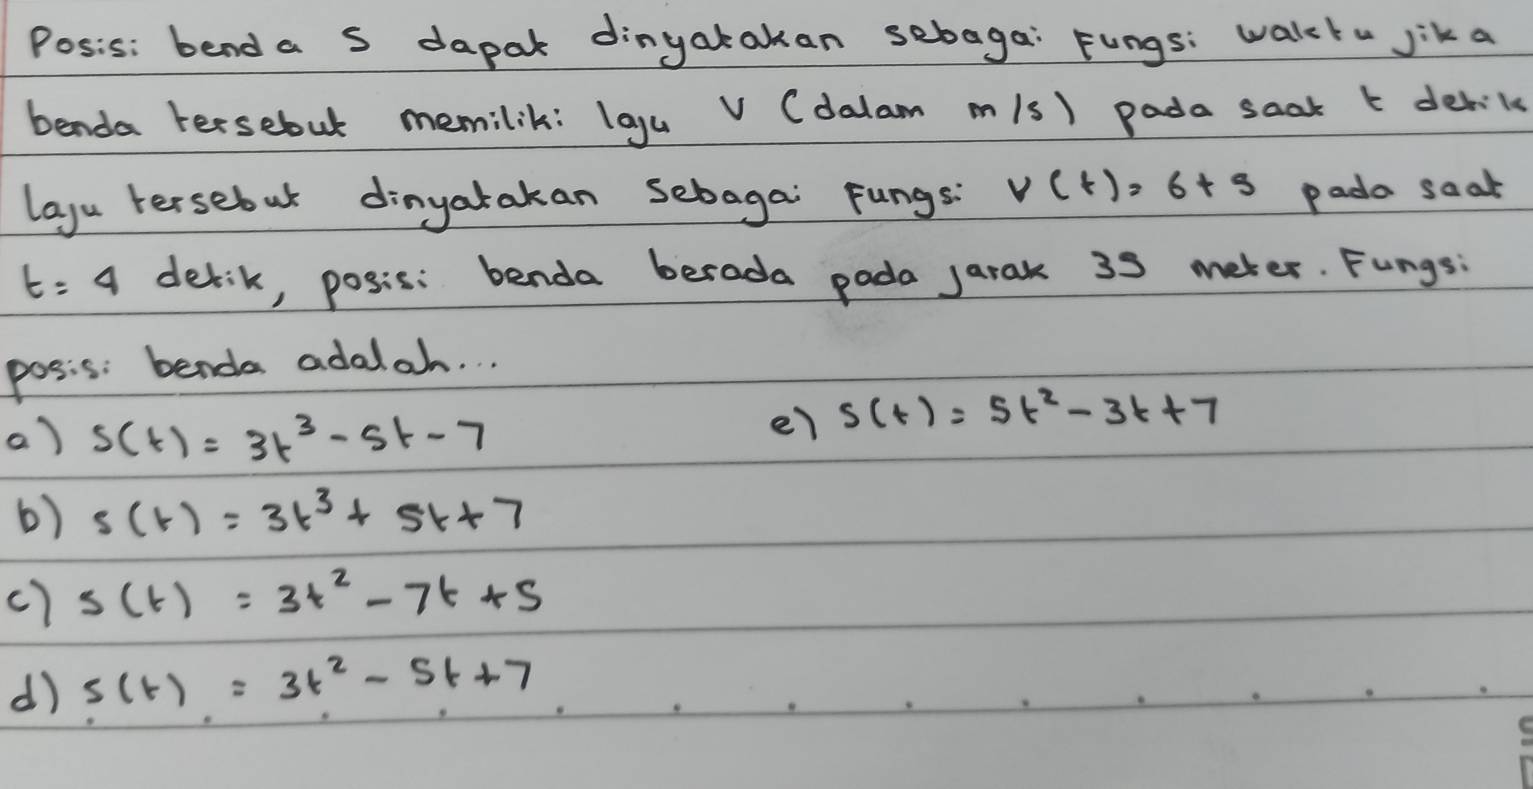 Posisi benda s dapat dinyatakan sebagai Fungsi waktu jika
benda tersebut memiliki laju v (dalam m/s) pada saat t detik
laju tersebut dinyatakan sebagai Fungsi v(t) = 6t5 pada saat
t = 4 detik, posisi benda berada pada jarak 35 meter. Fungsi
posisi benda adalah...
a) s(t) = 3t³ - 5t - 7
e) s(t) = 5t² - 3t + 7
b) s(t) = 3t³ + 5t + 7
c) s(t) = 3t² - 7t + 5
d) s(t) = 3t² - 5t + 7